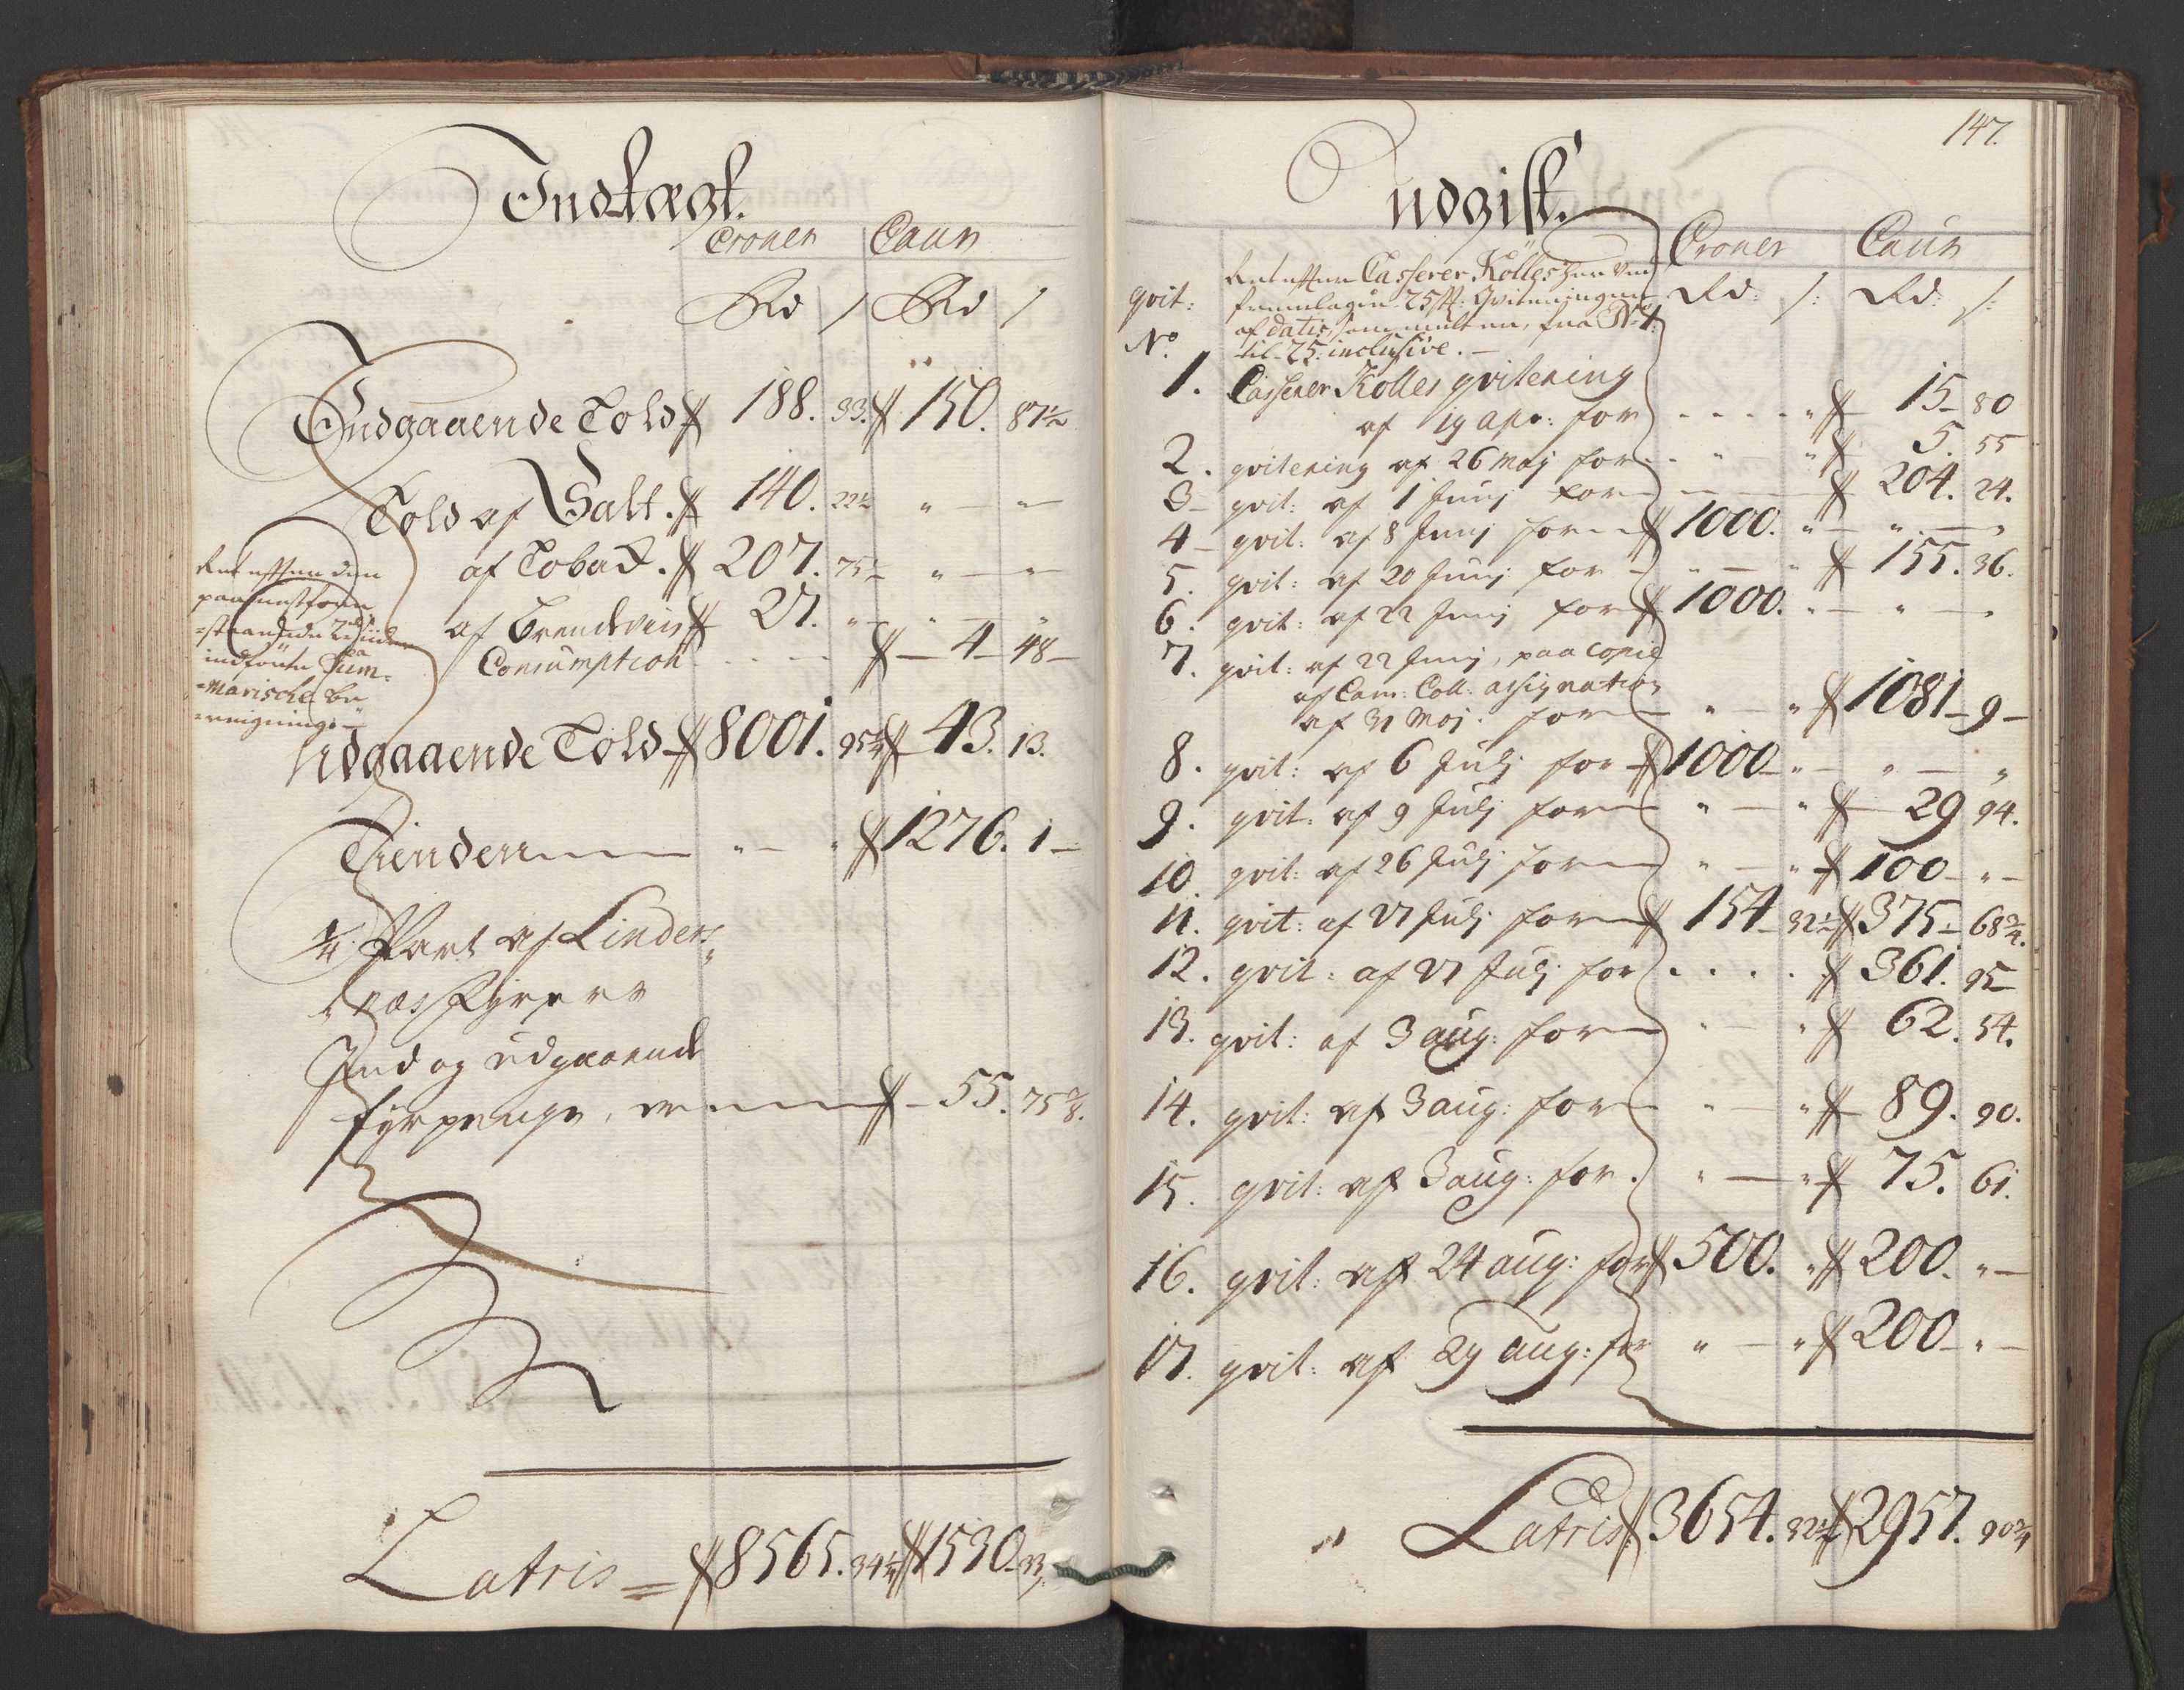 Indtægt.
Croner Caur
Rd / Rd /
Indgaaende Told 188. 33. 150. 87½
Told af Salt. 140. 22½ " — " —
af Toback. 207. 75½ " — " —
af Brendeviin 27. " — " — "
Consumption - - - - 4 — 48 —
Ret efter den
paa
indførte Sum=
=marische be
=regnings —
Udgaaende Told 8001. 95¾ 43. 13.
Tienden " — " 1276. 1 —
¼ Part af Lindes
næs Fyrene
Ind og udgaaende
fyrpenge, 55. 75⅜.
Latris = 8565. 34¼ 1530. 33
147.
Udgift.
Croner Caur
Rd: /: Rd: /:
qvit:
No
Ret efter Casserer Kölles her ved
fremlagde 25 st: Qviteringer
af datis, som melder, fra No 1.
til 25. inclusive. —
1. Casserer Kölles qvitering
af 19 apr: for - - - - " 15 — 80
2. qvitering af 26 Maj for - " " 5. 55
3 — qvit: af 1 Junj for — 204. 24.
4 — qvit: af 8 Junj for 1000. " — " — "
5. qvit: af 20 Junj for — " — " 155. 36.
6. qvit: af 22 Junj for 1000. " — " — "
7. qvit: af 22 Junj, paa Copie
af Cam: Coll: assignation
af 31 Maj. for — " — " 1081 — 9 —
8. qvit: af 6 Julj for 1000 — " — " — "
9. qvit: af 9 Julj for — " — " 29 94.
10. qvit: af 26 Julj for — " — " 100 — " —
11. qvit: af 27 Julj for 154 — 32½ 375 — 68¾.
12. qvit: af 27 Julj for . . . . 361. 95
13. qvit: af 3 aug: for — " — " 62. 54.
14. qvit: af 3 aug: for — " — " 89. 90.
15. qvit: af 3 aug: for. " — " 75. 61.
16. qvit: af 24 aug: for 500. " 200. " —
17. qvit: af 29 aug: for " — " 200 — " —
Latris 3654. 32½ 2957. 90¾